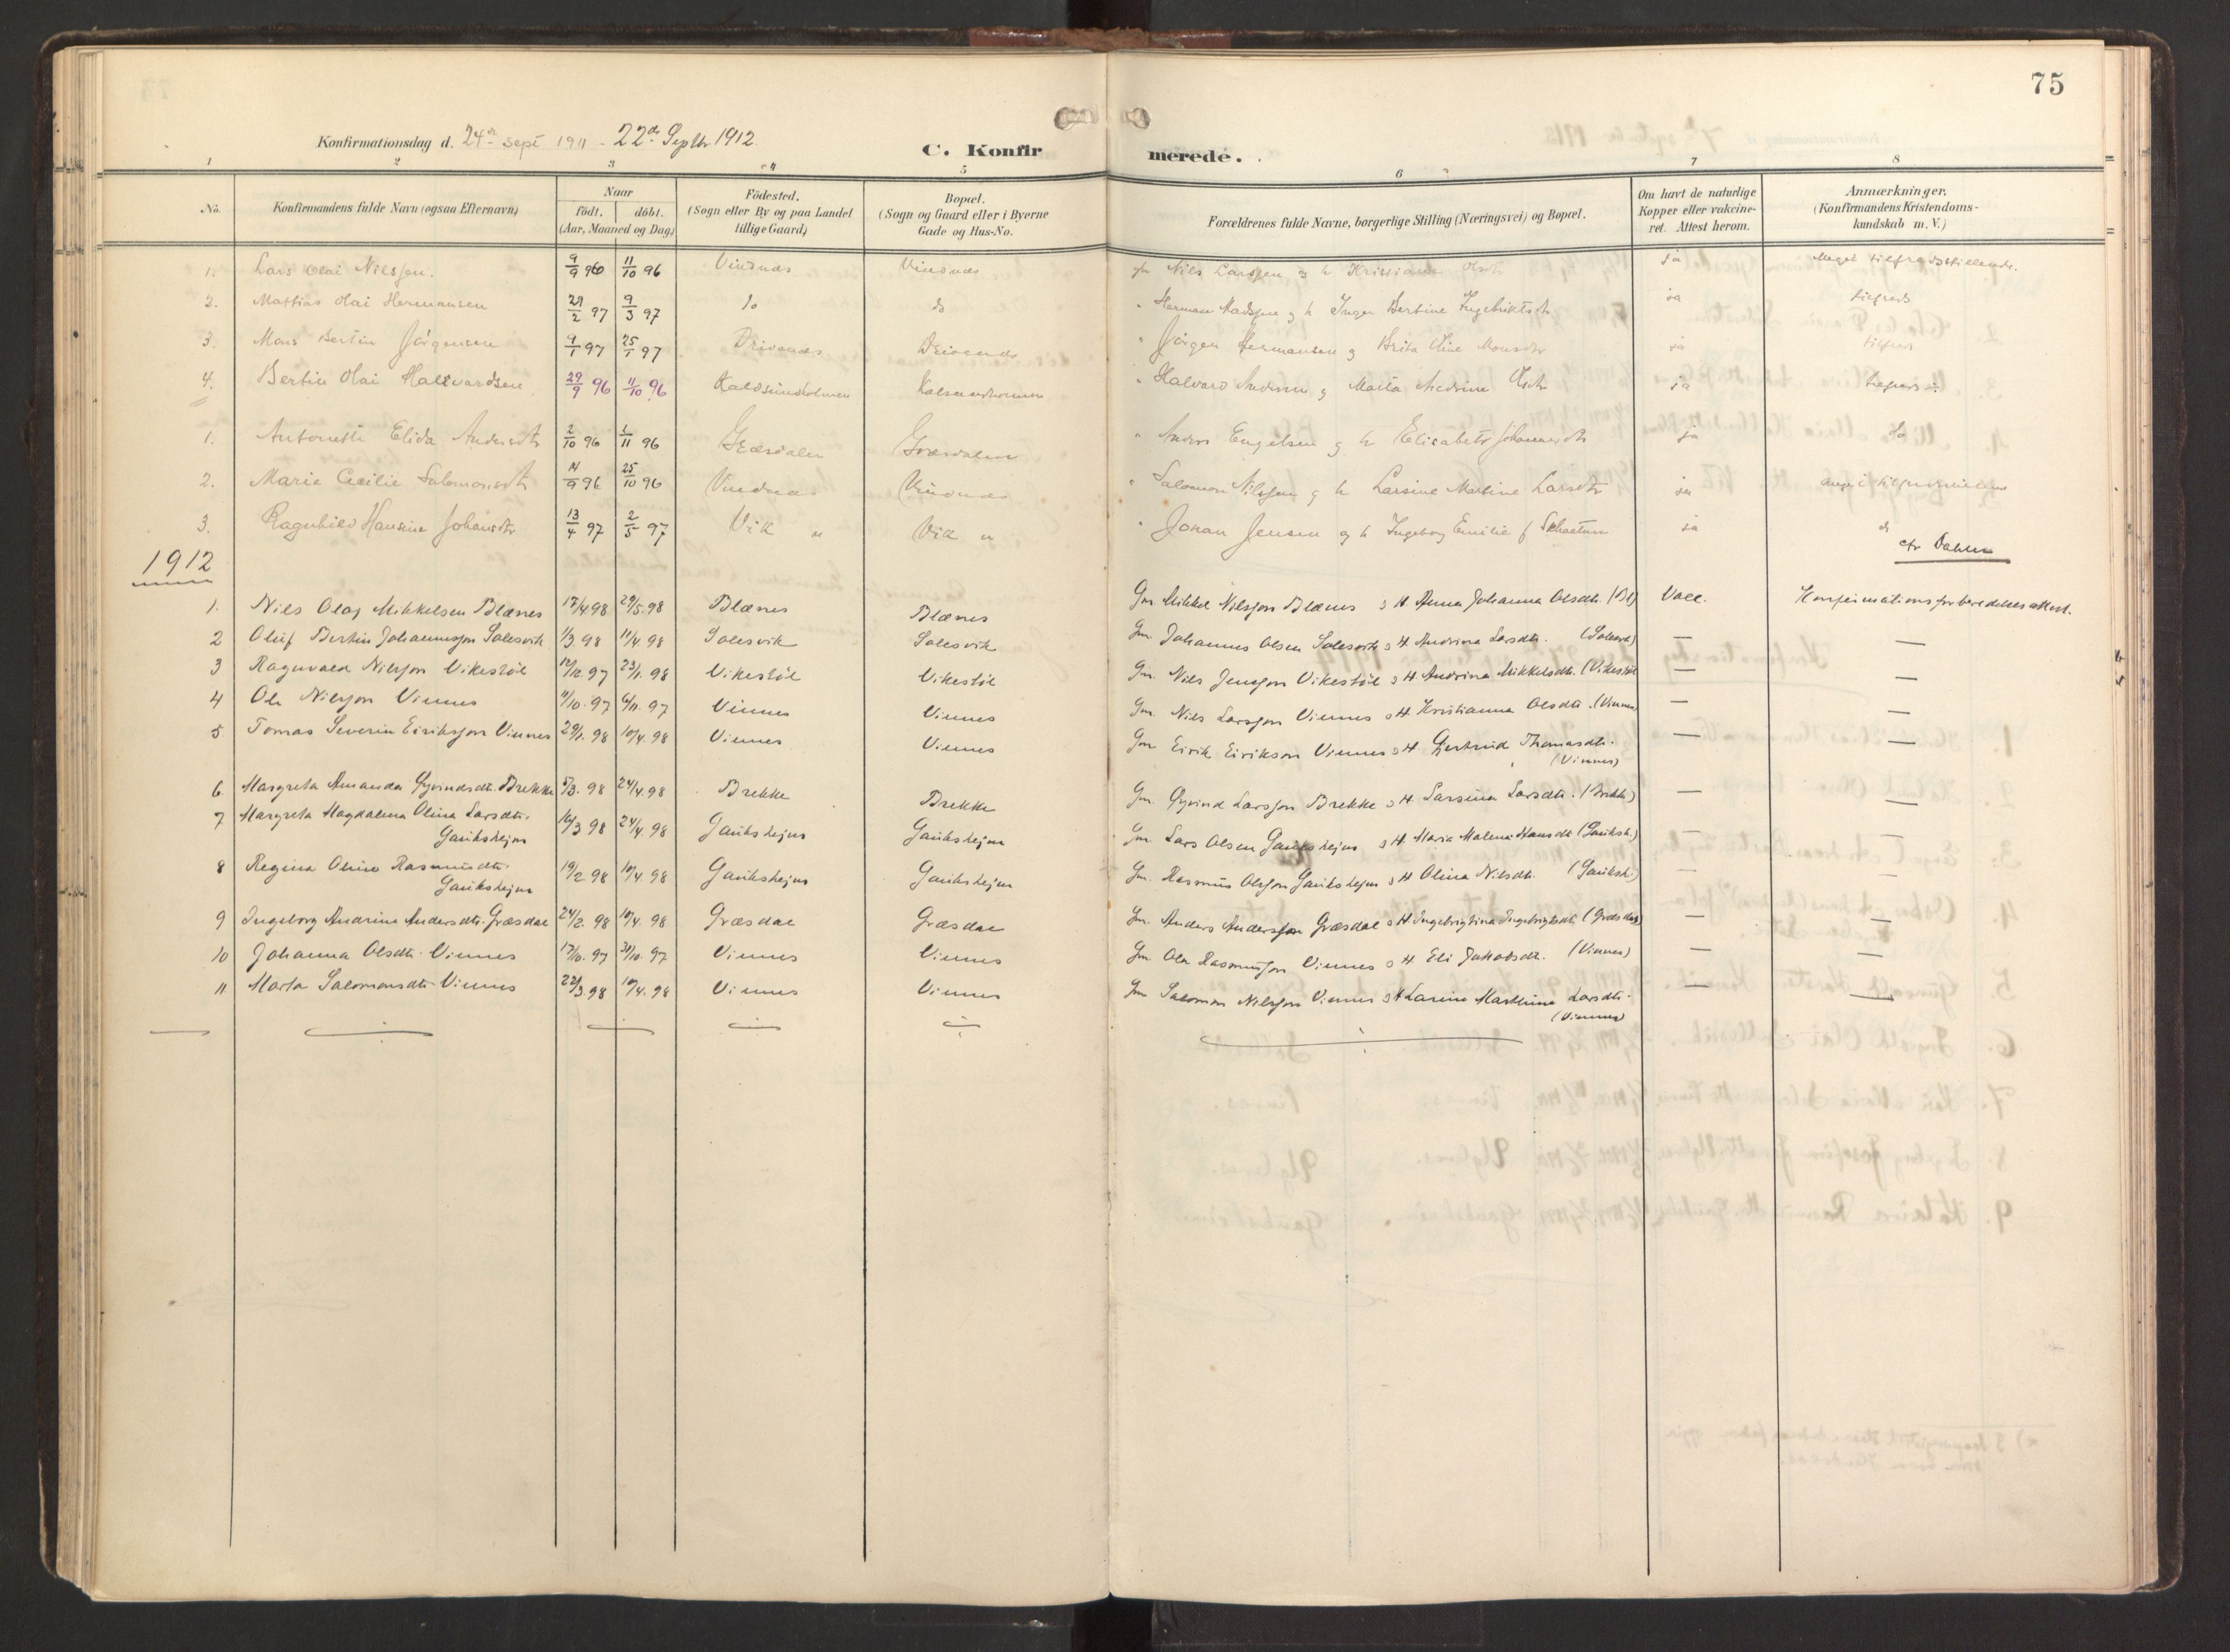 75
Konfirmationsdag d. 24de sept 1911 - 22de Septbr 1912.
C. Konfirmerede.
1 2 3 4 5 6 7 8
No. Konfirmandens fulde Navn (ogsaa Efternavn) Naar födt. döbt. (Aar, Maaned og Dag.) Födested. (Sogn eller By og paa Landet tillige Gaard) Bopæl. (Sogn og Gaard eller i Byerne Gade og Hus-No. Forældrenes fulde Navne, borgerlige Stilling (Næringsvei) og Bopæl. Om havt de naturlige Kopper eller vakcineret. Attest herom. Anmærkninger. (Konfirmandens Kristendomskundskab m. V.)
1. Lars Olai Nilssen. 9/9 96 11/10 96 Vindnæs Vindnæs Nils Larssen og h Kristianna Olsdtr ja Meget tilfredsstillende.
2. Mattias Olai Hermansen 29/2 97 9/3 97 do do " Herman Madssen og h Inger Bertine Ingebriktsdtr ja tilfreds
3. Mons Bertin Jörgensen 9/1 97 25/1 97 Drivenæs Drivenæs " Jörgen Hermansen og Brita Oline Monsdtr ja tilfreds
4. Bertin Olai Hallvardsen 29/9 96 11/10 96 Kalsundholmen Kalsundholmen " Halvard Andersen og Marta Andrine Olsdtr ja tilfreds
1. Antonette Elida Andersdtr 2/10 96 1/11 96 Græsdalen Græsdalen " Anders Engelsen og h Elisabeth Johannesdtr ja
2. Marie Cecilie Salomonsdtr 14/9 96 25/10 96 Vindnæs Vindnæs " Salomon Nilssen og h Larsine Martine Larsdtr ja
3. Ragnhild Hansine Johansdtr 13/4 97 2/5 97 Vik " Vik " " Johan Jensen og h Ingeborg Emilie ja do
Dahlen
1912
1. Nils Olag Mikkelsen Blænes 17/4 98 29/5.98 Blænes Blænes Gm. Mikkel Nilsson Blænes o H. Anna Johanna Olsdtr. (Bl) Vacc. Konfirmationsforberedelses attest.
2 Oluf Bertin Johannesson Solesvik 1/3 98 11/4.98 Solesvik Solesvik Gm. Johannes Olsen Solesvik o H. Andrina Larsdtr. (Solesvik) — —
3 Ragnvald Nilsson Vikestöl 12/12.97 23/1.98 Vikestöl Vikestöl Gm. Nils Jensson Vikestöl o H. Andrina Mikkelsdtr. (Vikestöl — —
4 Ole Nilsson Vinnes 11/10.97 6/11.97 Vinnes Vinnes Gm. Nils Larsson Vinnes o H. Kristianna Olsdtr. (Vinnes) — —
5 Tomas Severin Eiriksson Vinnes 29/1.98 10/4.98 Vinnes Vinnes Gm. Eirik Eirikson Vinnes o H. Gjertrud Thomasdtr. — —
(Vinnes)
6 Margreta Amanda Öyvindsdtr. Brekke 5/3.98 24/4.98 Brekke Brekke Gm. Öyvind Larsson Brekke o H. Larsina Larsdtr. (Brekke) — —
7 Margreta Magdalena Olina Larsdtr. 16/3 98 24/4.98 Gaukshejm Gaukshejm Gm. Lars Olsen Gaukshejm o H. Maria Malena Hansdtr (Gauksh.) — —
Gaukshejm
8 Regina Oline Rasmusdtr. 19/2 98 10/4 98 Gaukshejm Gaukshejm Gm. Rasmus Olsson Gaukshejm o H Olina Nilsdtr. (Gauksh.) — —
Gaukshejm
9 Ingeborg Andrine Andersdtr. Græsdal 24/2.98 10/4.98 Græsdal Græsdal Gm. Anders Andersson Græsdal o H. Ingebrigtina Ingebrigtsdtr (Græsdal) — —
10 Johanna Olsdtr. Vinnes 17/10.97 31/10.97 Vinnes Vinnes Gm. Ole Rasmusson Vinnes o H Eli Jakobsdtr. (Vinnes) — —
11 Marta Salomonsdtr Vinnes 22/3.98 10/4.98 Vinnes Vinnes Gm Salomon Nilsson Vinnes o H Larine Marthine Larsdtr. — —
(Vinnes)